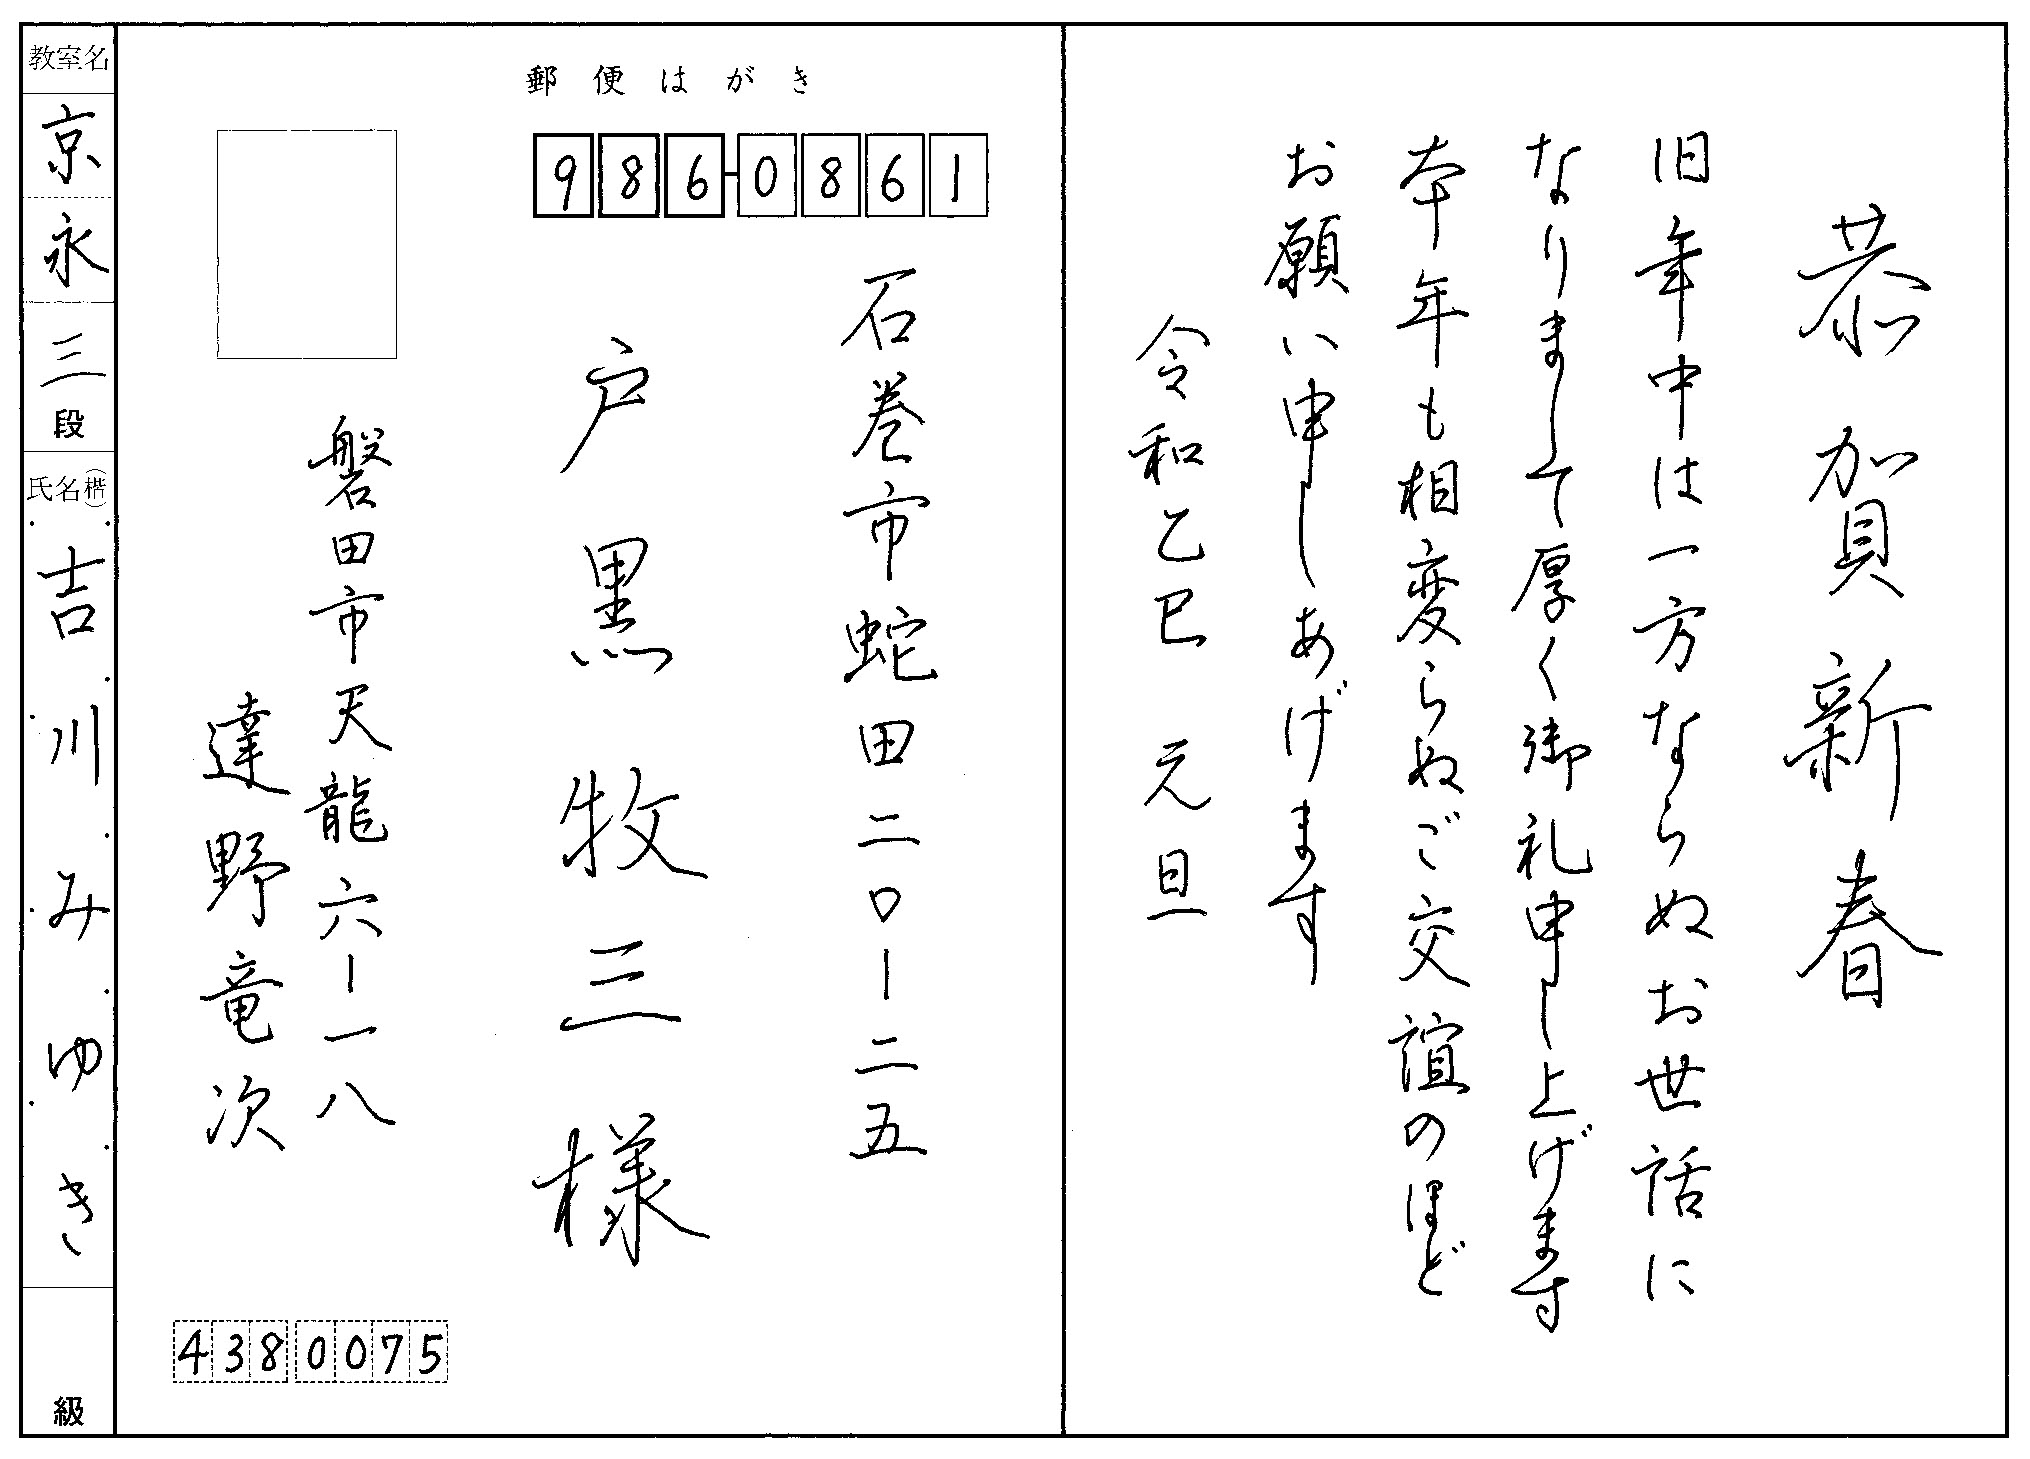 恭賀新春
旧年中は一方ならぬお世話に
なりまして厚く御礼申し上げます
本年も相変らぬご交誼のほど
お願い申しあげます
令和乙巳 元旦
郵便はがき
986-0861
石巻市蛇田二〇ー二五
戸黒牧三様
磐田市天龍六ー一八
達野竜次
4380075
教室名
京永
三段
氏名(楷)
吉川みゆき
級